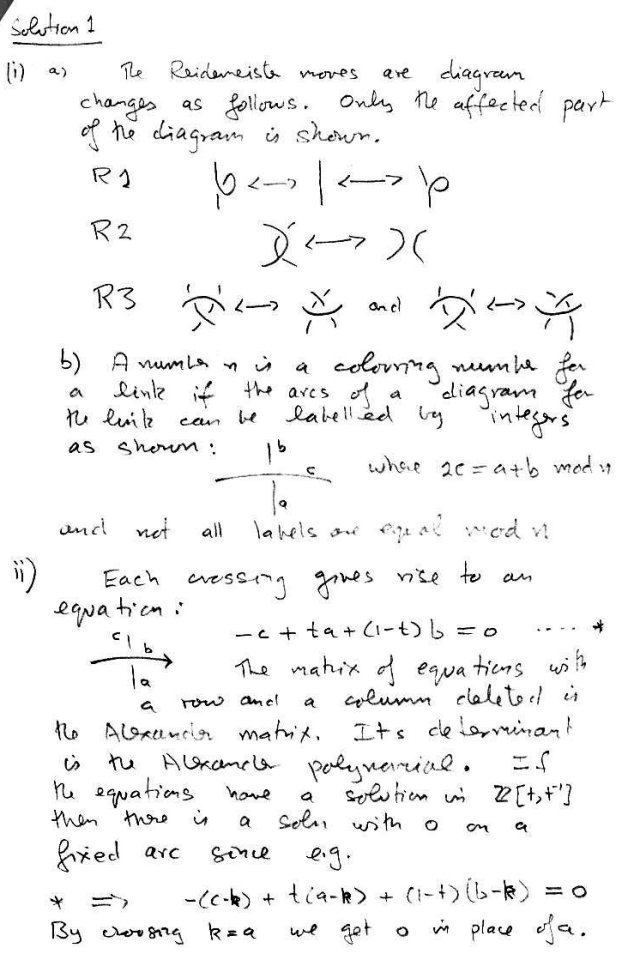 Solution 1
(i) a) The Reidemeister moves are diagram
changes as follows. Only the affected part
of the diagram is shown.
R1 ⟷ ⟷
R2 ⟷
R3 ⟷ and ⟷
b) A number n is a colouring number for
a link if the arcs of a diagram for
the link can be labelled by integers
as shown:
b
c where 2c = a+b mod n
a
and not all labels are equal mod n
ii) Each crossing gives rise to an
equation:
-c + ta + (1-t) b = 0 .... *
c b
a
The matrix of equations with
a row and a column deleted is
the Alexander matrix. Its determinant
is the Alexander polynomial. If
the equations have a solution in ℤ[t,t⁻¹]
then there is a soln with 0 on a
fixed arc since e.g.
* ⟹ -(c-k) + t(a-k) + (1-t)(b-k) = 0
By choosing k=a we get 0 in place of a.